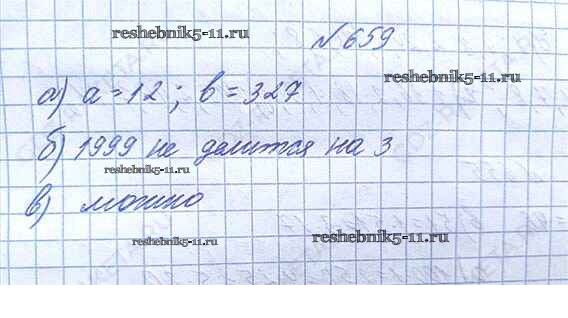 reshebnik5-11.ru
№659
reshebnik5-11.ru
а) a=12; b=327
б) 1999 не делится на 3
reshebnik5-11.ru
в) можно
reshebnik5-11.ru
reshebnik5-11.ru